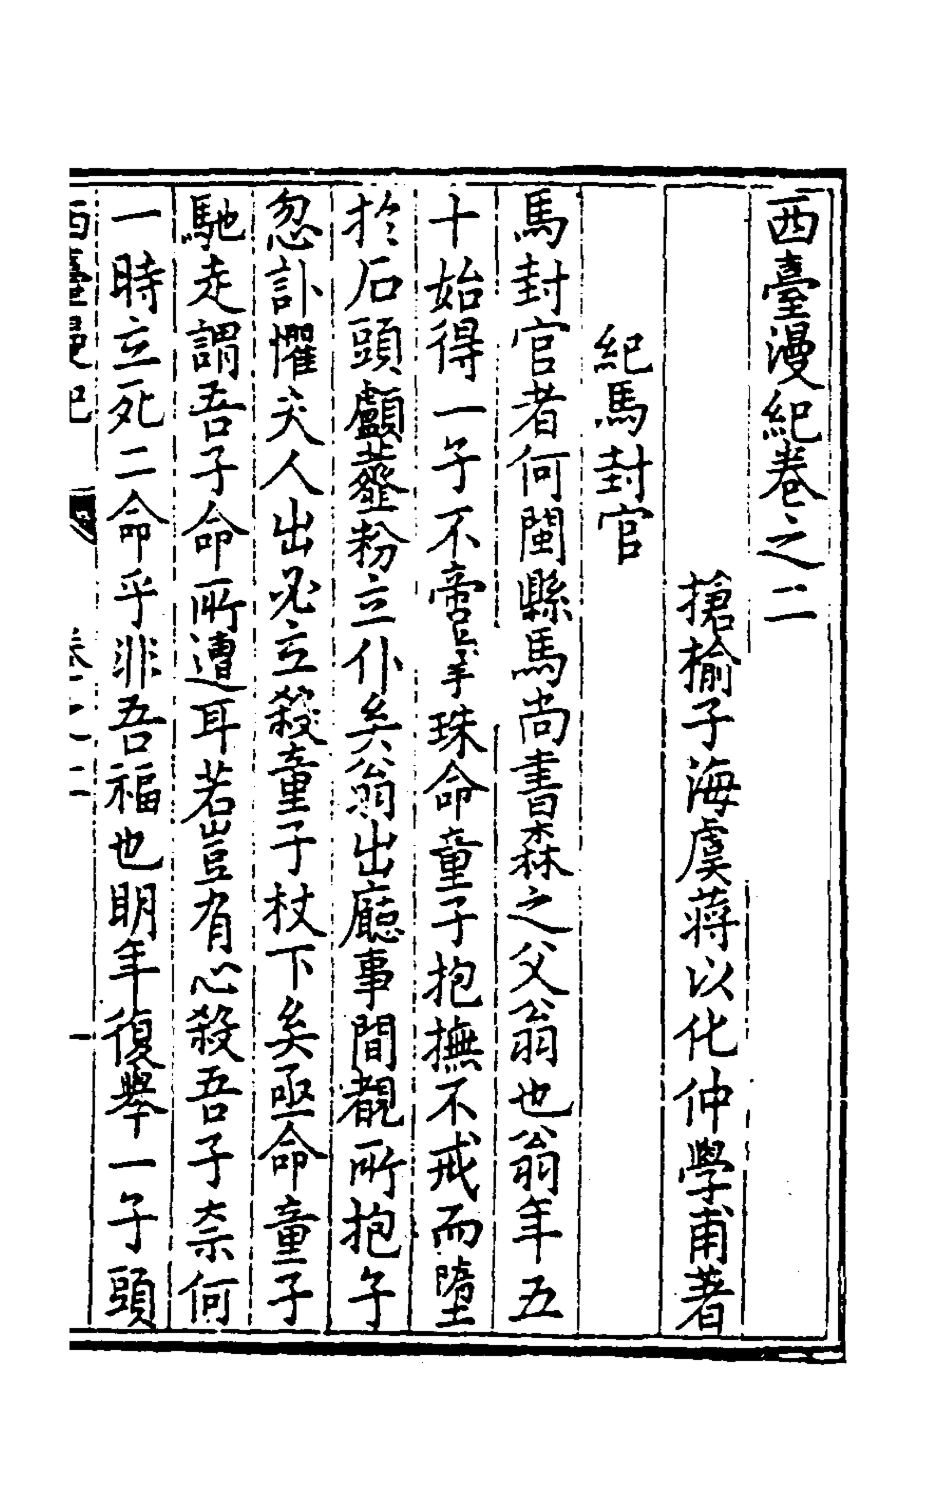 西臺漫紀卷之二
搶榆子海虞蔣以化仲學甫著
紀馬封官
馬封官者何閩縣馬尚書森之父翁也翁年五
十始得一子不啻掌珠命童子抱撫不戒而墮
於石頭顱虀粉立仆矣翁出廳事間覩所抱子
忽訃懼夫人出必立殺童子杖下矣亟命童子
馳走謂吾子命所遭耳若豈有心殺吾子柰何
一時立死二命乎非吾福也明年復舉一子頭
西臺漫紀 卷之二 一